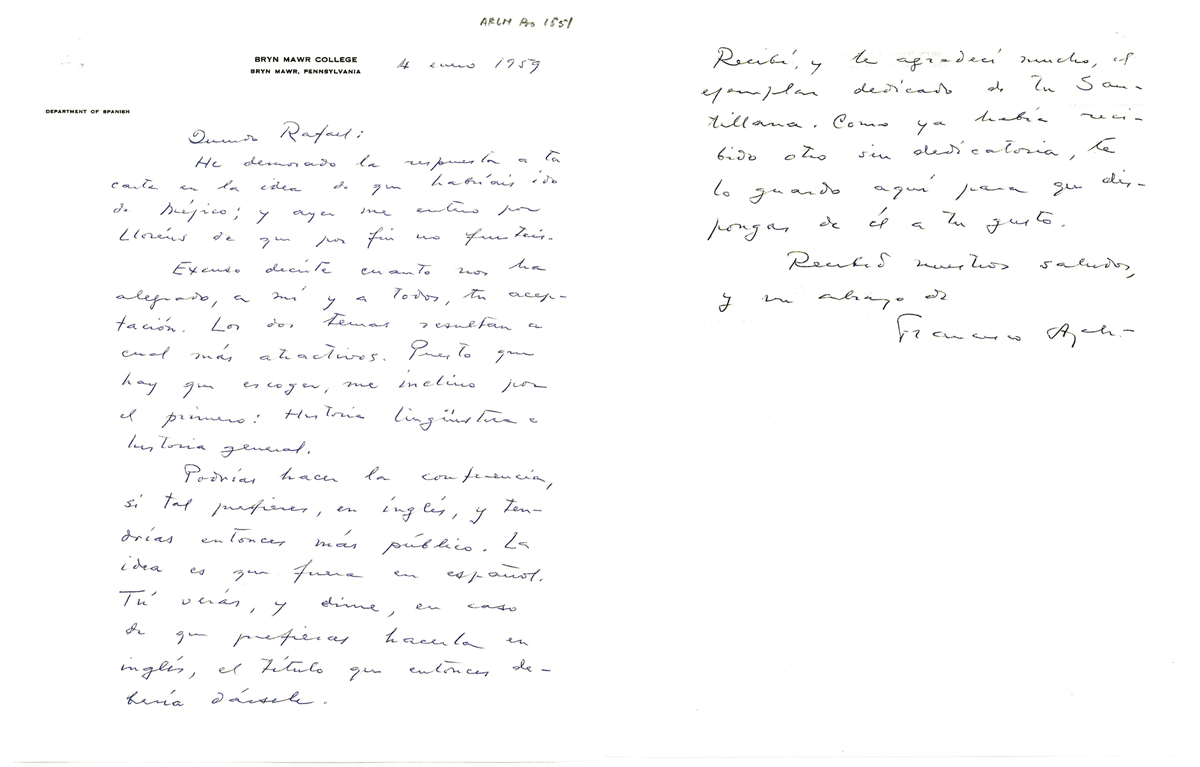 ARLM Pro 1551
BRYN MAWR COLLEGE
BRYN MAWR, PENNSYLVANIA
4 enero 1959
DEPARTMENT OF SPANISH
Querido Rafael:
He demorado la respuesta a tu
carta en la idea de que habríais ido
de Méjico; y ayer me entero por
Lloréns de que por fin no fuisteis.
Excuso decirte cuanto nos ha
alegrado, a mí y a todos, tu acep-
tación. Los dos temas resultan a
cual más atractivos. Puesto que
hay que escoger, me inclino por
el primero: Historia lingüística e
historia general.
Podrías hacer la conferencia,
si tal prefieres, en inglés, y ten-
drías entonces más público. La
idea es que fuera en español.
Tú verás, y dime, en caso
de que prefieras hacerla en
inglés, el título que entonces de-
bería dársele.
Recibí, y te agradecí mucho, el
ejemplar dedicado de tu San-
tillana. Como ya había reci-
bido otro sin dedicatoria, te
lo guardo aquí para que dis-
pongas de él a tu gusto.
Recibid nuestros saludos,
y un abrazo de
Francisco Ayala